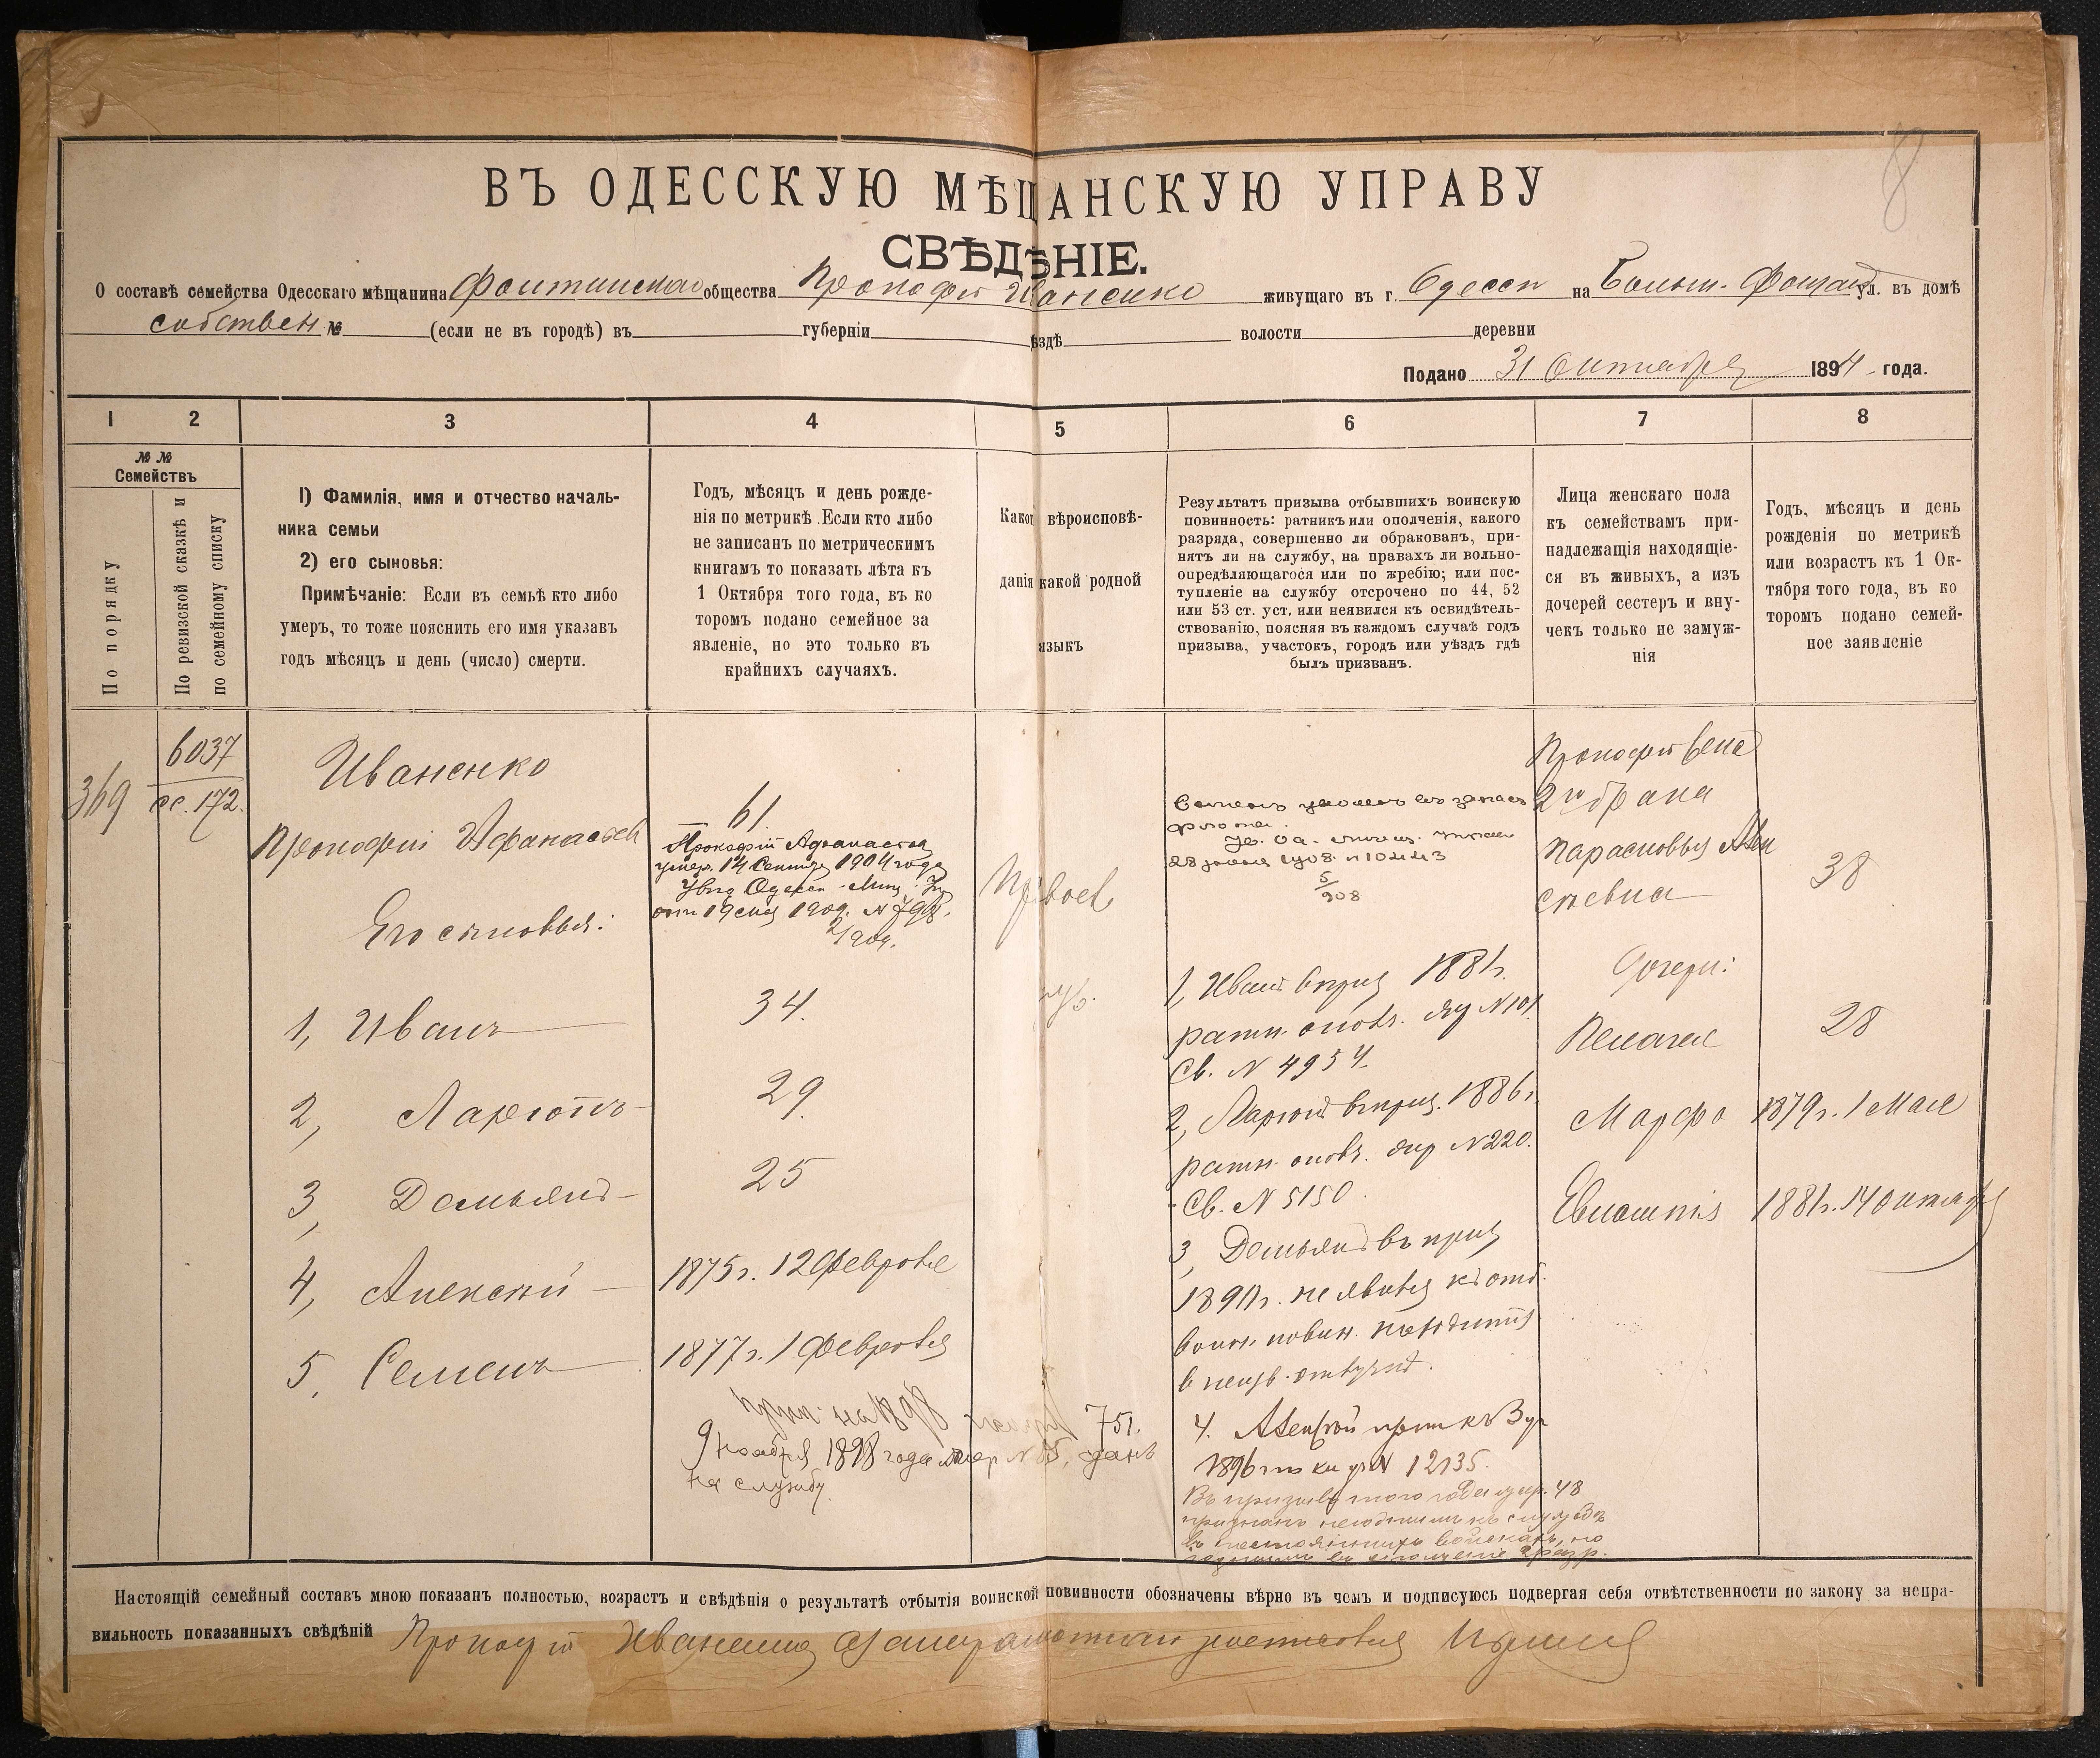 8
ВЪ ОДЕССКУЮ МѢЩАНСКУЮ УПРАВУ
СВѢДѢНІЕ.
О составѣ семейства Одесскаго мѣщанина Фонтанскаго общества Прокофій Иваненко живущаго въ г. Одессѣ на Больш. Фонтан ул. въ домѣ
собствен № (если не въ городѣ) въ губерніи ѣздѣ волости деревни
Подано 31 Октября 1894 года.
1 2 3 4 5 6 7 8
№ №
Семействъ
По порядку
По ревизской сказкѣ и
по семейному списку
1) Фамилія, имя и отчество началь-
ника семьи
2) его сыновья:
Примѣчаніе: Если въ семьѣ кто либо
умеръ, то тоже пояснить его имя указавъ
годъ мѣсяцъ и день (число) смерти.
Годъ, мѣсяцъ и день рожде-
нія по метрикѣ. Если кто либо
не записанъ по метрическимъ
книгамъ то показать лѣта къ
1 Октября того года, въ ко
торомъ подано семейное за
явленіе, но это только въ
крайнихъ случаяхъ.
Какого вѣроисповѣ-
данія какой родной
языкъ
Результатъ призыва отбывшихъ воинскую
повинность: ратникъ или ополченія, какого
разряда, совершенно ли обракованъ, при-
нятъ ли на службу, на правахъ ли вольно-
опредѣляющагося или по жребію; или пос-
тупленіе на службу отсрочено по 44, 52
или 53 ст. уст. или неявился къ освидѣтель-
ствованію, поясняя въ каждомъ случаѣ годъ
призыва, участокъ, городъ или уѣздъ гдѣ
былъ призванъ.
Лица женскаго пола
къ семействамъ при-
надлежащія находящіе-
ся въ живыхъ, а изъ
дочерей сестеръ и вну-
чекъ только не замуж-
нія
Годъ, мѣсяцъ и день
рожденія по метрикѣ
или возрастъ къ 1 Ок-
тября того года, въ ко
торомъ подано семей-
ное заявленіе
369
6037
172.
Иваненко
Прокофій Афанасьев
Его сыновья:
1, Иванъ
2, Ларіонъ
3, Демьянъ
4, Алексѣй
5, Семенъ
61.
Прокофій Афанасьев
умер. 14 Сентяб 1904 года
Увѣд Одесск. Мѣщ. Упр
1909.
34.
29.
25
1875 г. 12 Февраля
1877 г. 1 Февраля
9 ноября 1898 года жер № 85, сданъ
на службу
751.
Правосл
Семенъ уволенъ въ запасъ
флота.
Ув. Од. мѣщ. Управ
28 1908. № 10443
5/908
1, Иванъ въ приз 1881 г.
ратн. ополч. жр № 101.
Св. № 4954.
2, Ларіонъ въ приз. 1886 г.
ратн. ополч. жр № 220.
Св. № 5150.
3, Демьянъ въ приз
1890 г. не явился къ отб.
воин. повин. находится
в неизв. отлучкѣ.
4. Алексѣй прип къ 3 уч
1896 12135.
Въ призывъ того года жер. 48
признанъ негоднымъ къ службѣ
въ постоянныхъ войскахъ, но
годнымъ въ ополченіе 2 разр.
Прокофія жена
2го брака
Парасковья Алек
сѣевна
38
Дочери:
Пелагея
28
Марфа 1879 г. 1 Мая
Евлампія 1881 г. 14 октября
Настоящій семейный составъ мною показанъ полностью, возрастъ и свѣдѣнія о результатѣ отбытія воинской повинности обозначены вѣрно въ чемъ и подписуюсь подвергая себя отвѣтственности по закону за непра-
вильность показанныхъ свѣдѣній Прокофій Иваненко